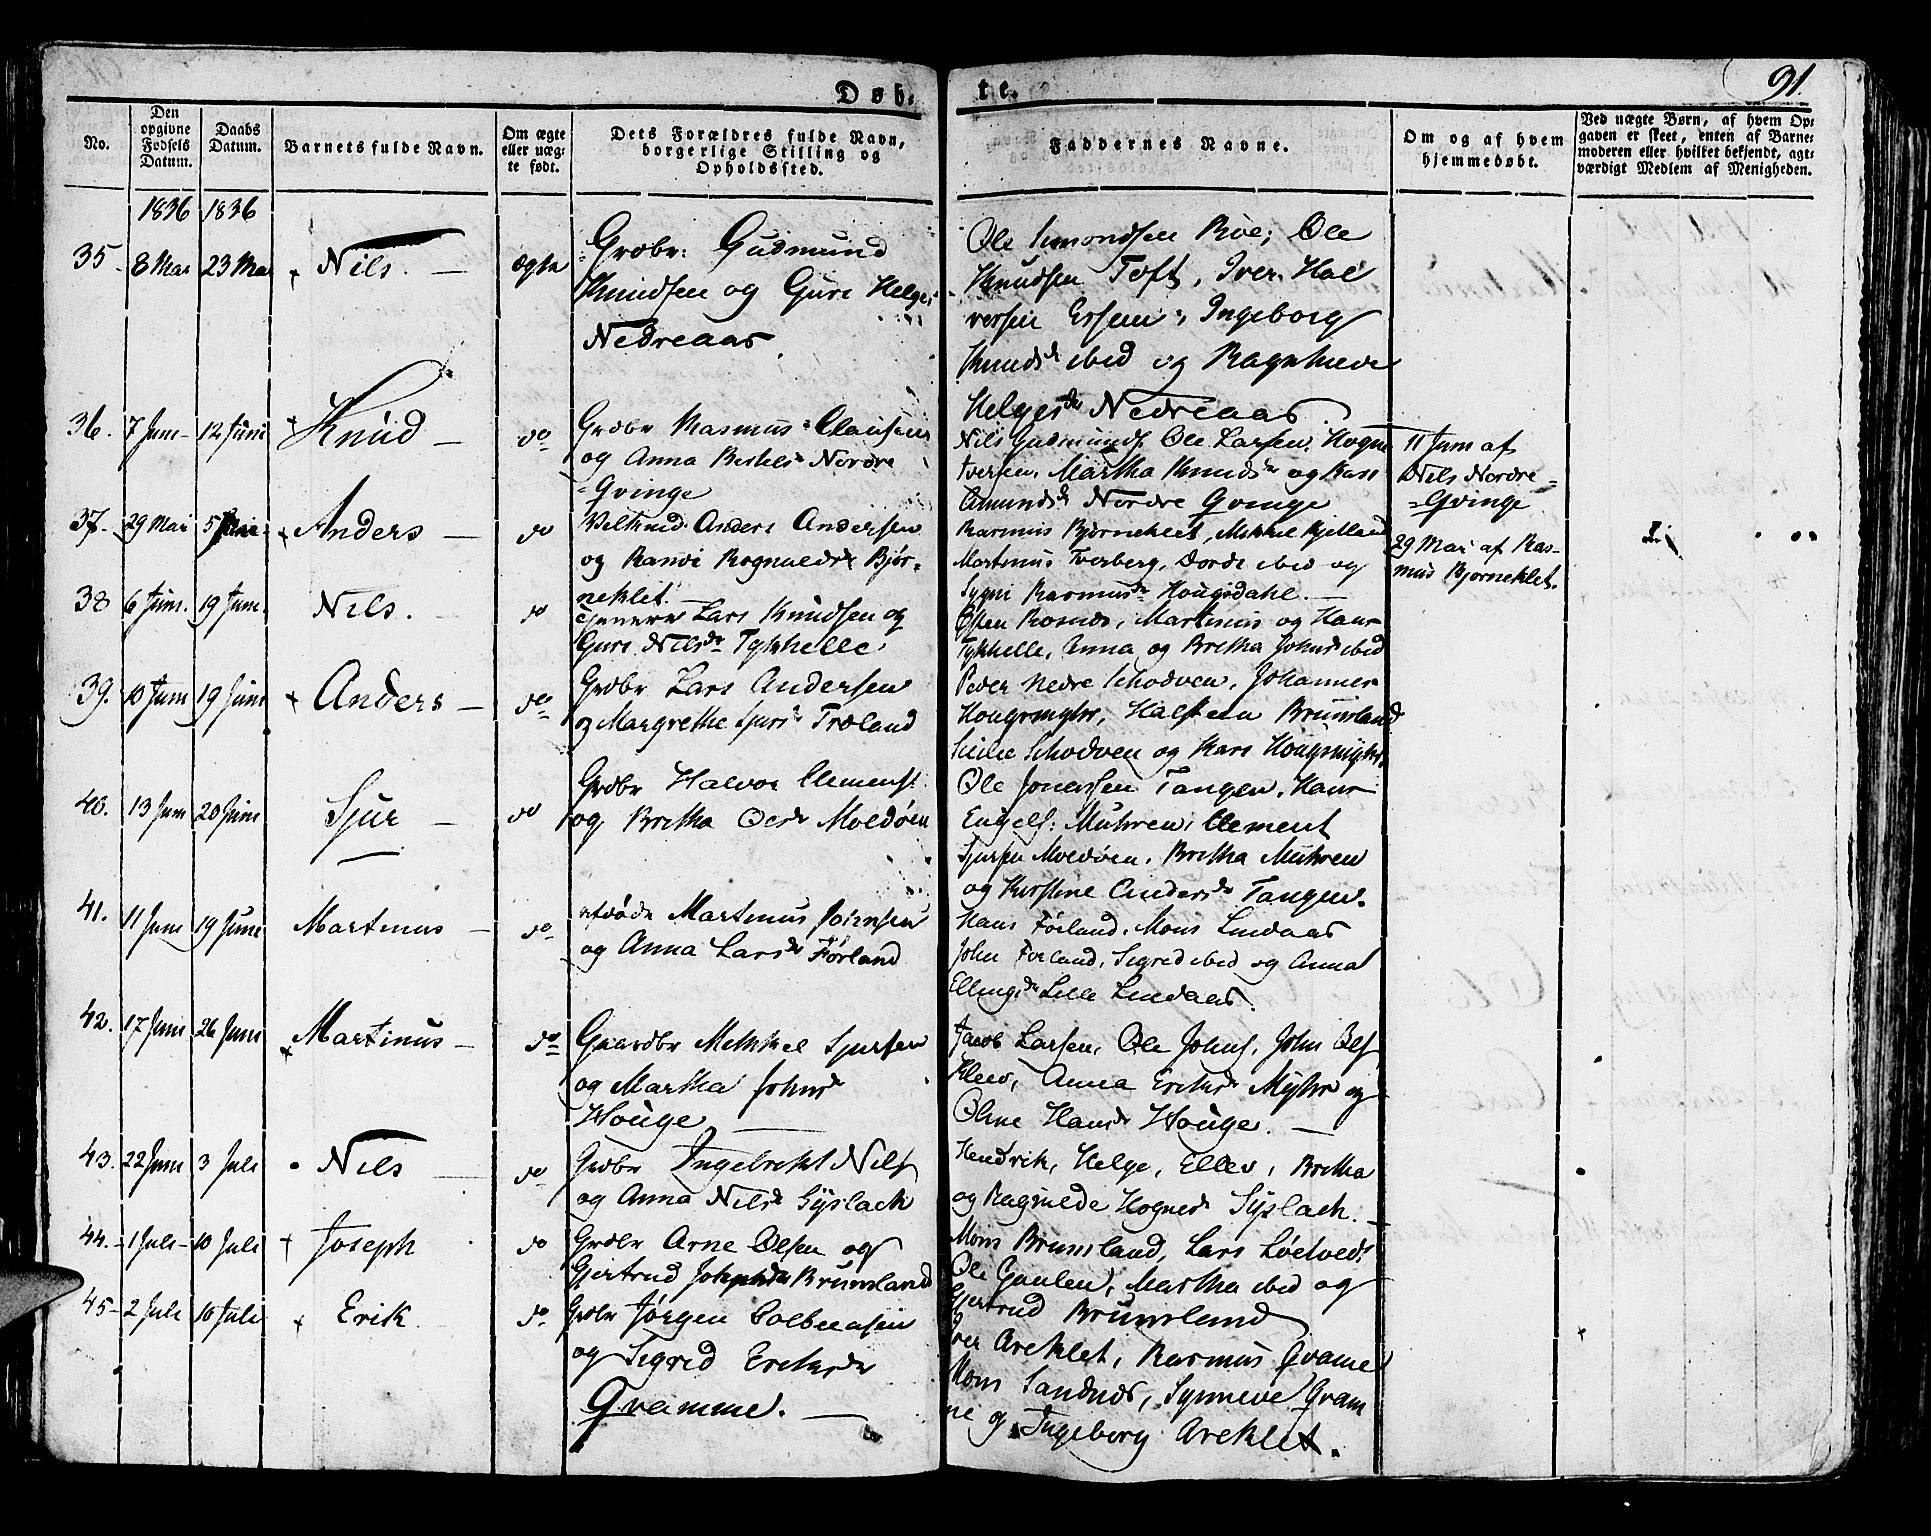 91
Døb- te.
No.
Den opgivne Fødsels Datum.
Daabs Datum.
Barnets fulde Navn.
Om ægte eller uæg- te født.
Dets Forældres fulde Navn, borgerlige Stilling og Opholdssted.
Faddernes Navne.
Om og af hvem hjemmedøbt.
Ved uægte Børn, af hvem Op- gaven er skeet, enten af Barne- moderen eller hvilket bekjendt, agt- værdigt Medlem af Menigheden.
1836 1836
35. 8 Mai 23 Mai Nils. ægte
Grdbr: Gudmund
Knudsen og Guri Helges
Nedreaas
Ole Simondsen Roe, Ole
Knudsen Toft, Iver Hal
versen Ersem, Ingeborg
Knudsdr ibid og Ragnhilde
Helgesdr Nedreaas
36. 7 Juni 12 Juni Knud do
Grdbr Rasmus Clausen
og Anna Nordre
Qvinge
Nils Gudmunds. Ole Larsen, Hogne
Iversen, Martha Knudsdr og Kari
Amundsdr Nordre Qvinge
11 Juni af
Nils Nordre
Qvinge
37. 29 Mai 5 Juni Anders do
Anders Andersen
og Randi Rognaldsdr Bjør-
neklet
Rasmus Bjørneklet, Mikkel Kjelland
Martinus Hverberg, Dorde ibid og
Sygni Rasmusdr Hougsdahl.
29 Mai af Ras-
mus Bjørneklet.
38 6 Juni. 19 Juni. Nils. do
Lars Knudsen og
Guri Nilsdr Tykhelle
Østen Rosnes, Martinus og Hans
Tykhelle, Anna og Britha Johnsdr ibid
39. 10 Juni 19 Juni Anders do
Grdbr Lars Andersen
og Margrethe Sjursdr Træland
Peder Nedre Schodven, Johannes
Hougsmyhr, Halsten Brunsland
Schodven og Kari Hougsmyhr.
40. 13 Juni 20 Juni Sjur do
Grdbr Halvor Clements.
og Britha Olsdr Moldøen
Ole Jonassen Tangen, Hans
Engels: Muhren, Clement
Sjursen Moldøen, Britha Muhren
og Kirstine Andersdr Tangen.
41. 11 Juni 19 Juni Martinus do
afdøde Martinus Johnsen
og Anna Larsdr Førland
Hans Førland, Mons Lindaas
John Førland, Sigrid ibid og Anna
Ellingsdr Lille Lindaas.
42. 17 Juni 26 Juni Martinus do
Gaardbr Mikkel Sjursen
og Martha Johnsdr
Houge
Jacob Larsen, Ole Johns. John Ols.
Anna Eriksdr Myhr og
Oline Hansdr Houge.
43. 22 Juni 3 Juli Nils do
Grdbr Ingebrikt Nils.
og Anna Nilsdr Syslach
Hendrik, Helge, Ellev, Britha
og Ragnilde Hognesdr Syslach.
44. 1 Juli 10 Juli Joseph do
Grdbr Arne Olsen og
Gjertrud Josephsdr Brunsland
Mons Brunsland, Lars Løtvedt
Ole Gaulen, Martha ibid og
Gjertrud Brunsland
45 2 Juli 10 Juli Erik do
Grdbr Jørgen Colbensen
og Sigrid Eriksdr
Qvamme.
Iver Areklet, Rasmus Qvame
Mons Sandnes, Synneve Qvam
me og Ingeborg Areklet.